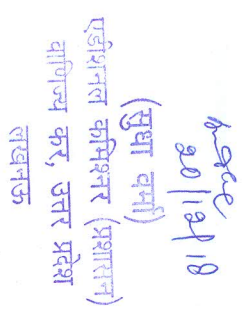 20/12/18
(सुधा वर्मा)
एडीशनल कमिश्नर (प्रशासन)
वाणिज्य कर, उत्तर प्रदेश
लखनऊ